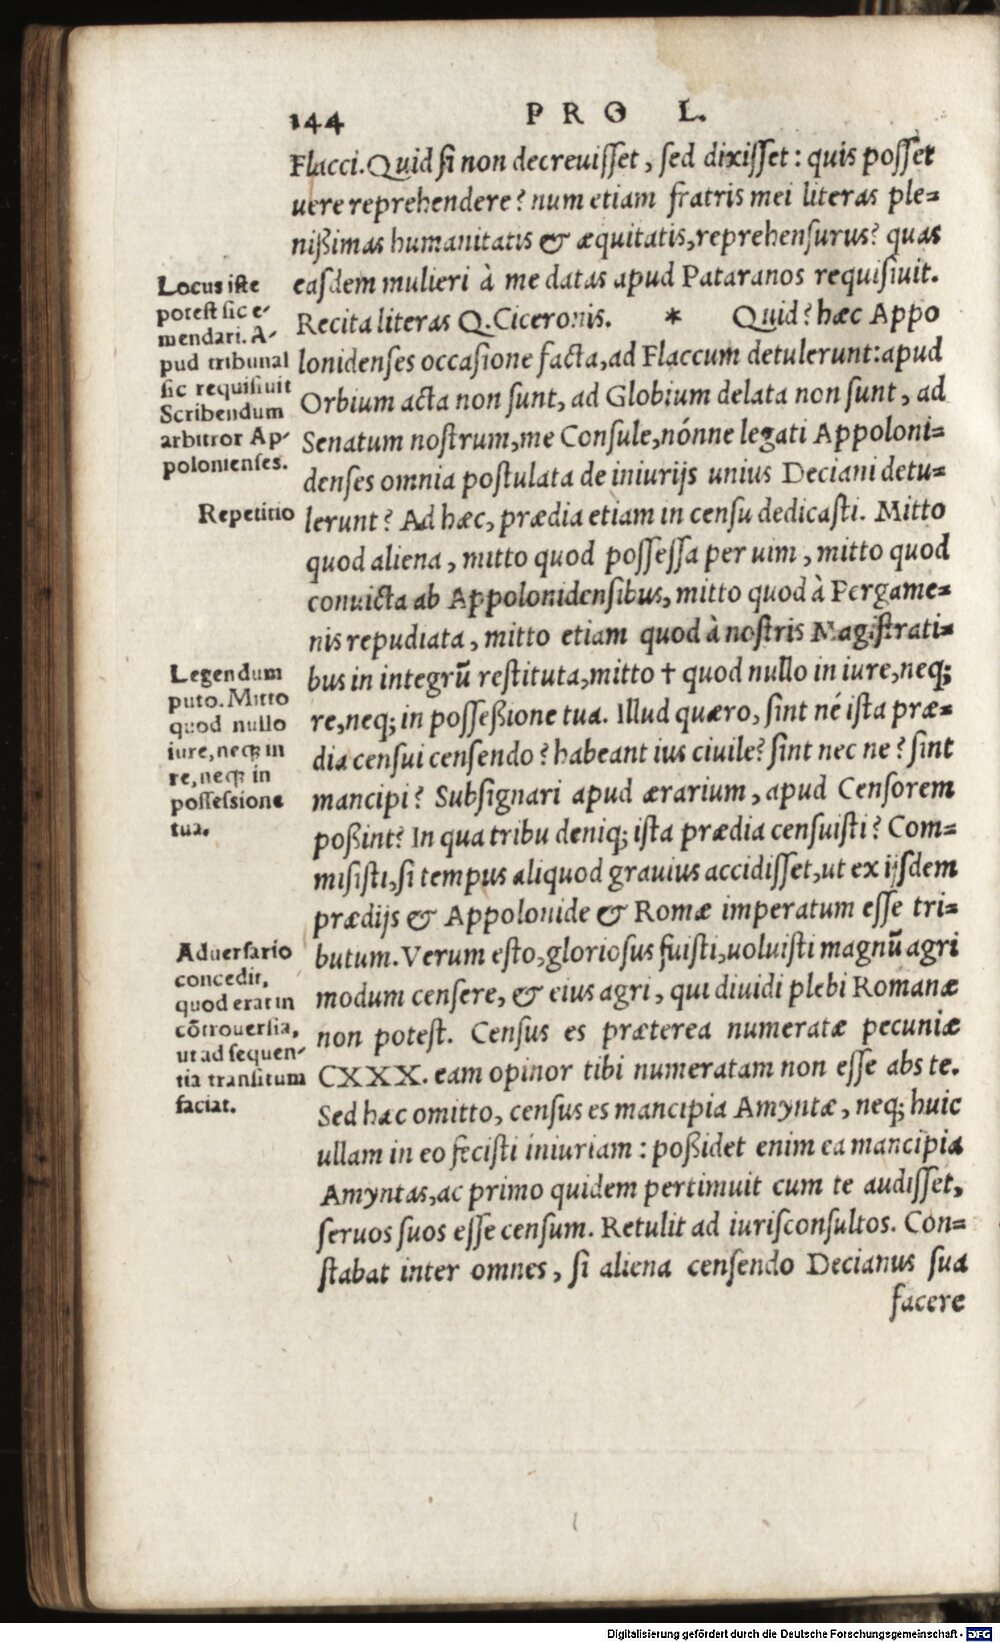 144 PRO L.
Flacci. Quid ſi non decreuiſſet, ſed dixiſſet: quis poſſet
uere reprehendere? num etiam fratris mei literas ple=
nißimas humanitatis & æquitatis, reprehenſurus? quas
eaſdem mulieri à me datas apud Pataranos requiſiuit.
Recita literas Q. Ciceronis. * Quid? hæc Appo
lonidenſes occaſione facta, ad Flaccum detulerunt: apud
Orbium acta non ſunt, ad Globium delata non ſunt, ad
Senatum noſtrum, me Conſule, nónne legati Appoloni=
denſes omnia poſtulata de iniurijs unius Deciani detu=
lerunt? Ad hæc, prædia etiam in cenſu dedicaſti. Mitto
quod aliena, mitto quod poſſeſſa per uim, mitto quod
conuicta ab Appolonidenſibus, mitto quod à Pergame=
nis repudiata, mitto etiam quod à noſtris Magiſtrati=
bus in integrũ reſtituta, mitto † quod nullo in iure, neq;
re, neq; in poſſeßione tua. Illud quæro, ſint né iſta præ=
dia cenſui cenſendo? habeant ius ciuile? ſint nec ne? ſint
mancipi? Subſignari apud ærarium, apud Cenſorem
poßint? In qua tribu deniq; iſta prædia cenſuiſti? Com=
miſiſti, ſi tempus aliquod grauius accidiſſet, ut ex ijſdem
prædijs & Appolonide & Romæ imperatum eſſe tri=
butum. Verum eſto, glorioſus fuiſti, uoluiſti magnũ agri
modum cenſere, & eius agri, qui diuidi plebi Romanæ
non poteſt. Cenſus es præterea numeratæ pecuniæ
CXXX. eam opinor tibi numeratam non eſſe abs te.
Sed hæc omitto, cenſus es mancipia Amyntæ, neq; huic
ullam in eo feciſti iniuriam: poßidet enim ea mancipia
Amyntas, ac primo quidem pertimuit cum te audiſſet,
ſeruos ſuos eſſe cenſum. Retulit ad iuriſconſultos. Con=
ſtabat inter omnes, ſi aliena cenſendo Decianus ſua
facere
Locus iſte
poteſt ſic e-
mendari. A-
pud tribunal
ſic requiſiuit
Scribendum
arbitror Ap-
polonienſes.
Repetitio
Legendum
puto. Mitto
quod nullo
iure, neq; in
re, neq; in
poſſeſsione
tua.
Aduerſario
concedit,
quod erat in
cõtrouerſia,
ut ad ſequen-
tia tranſitum
faciat.
Digitalisierung gefördert durch die Deutsche Forschungsgemeinschaft - DFG